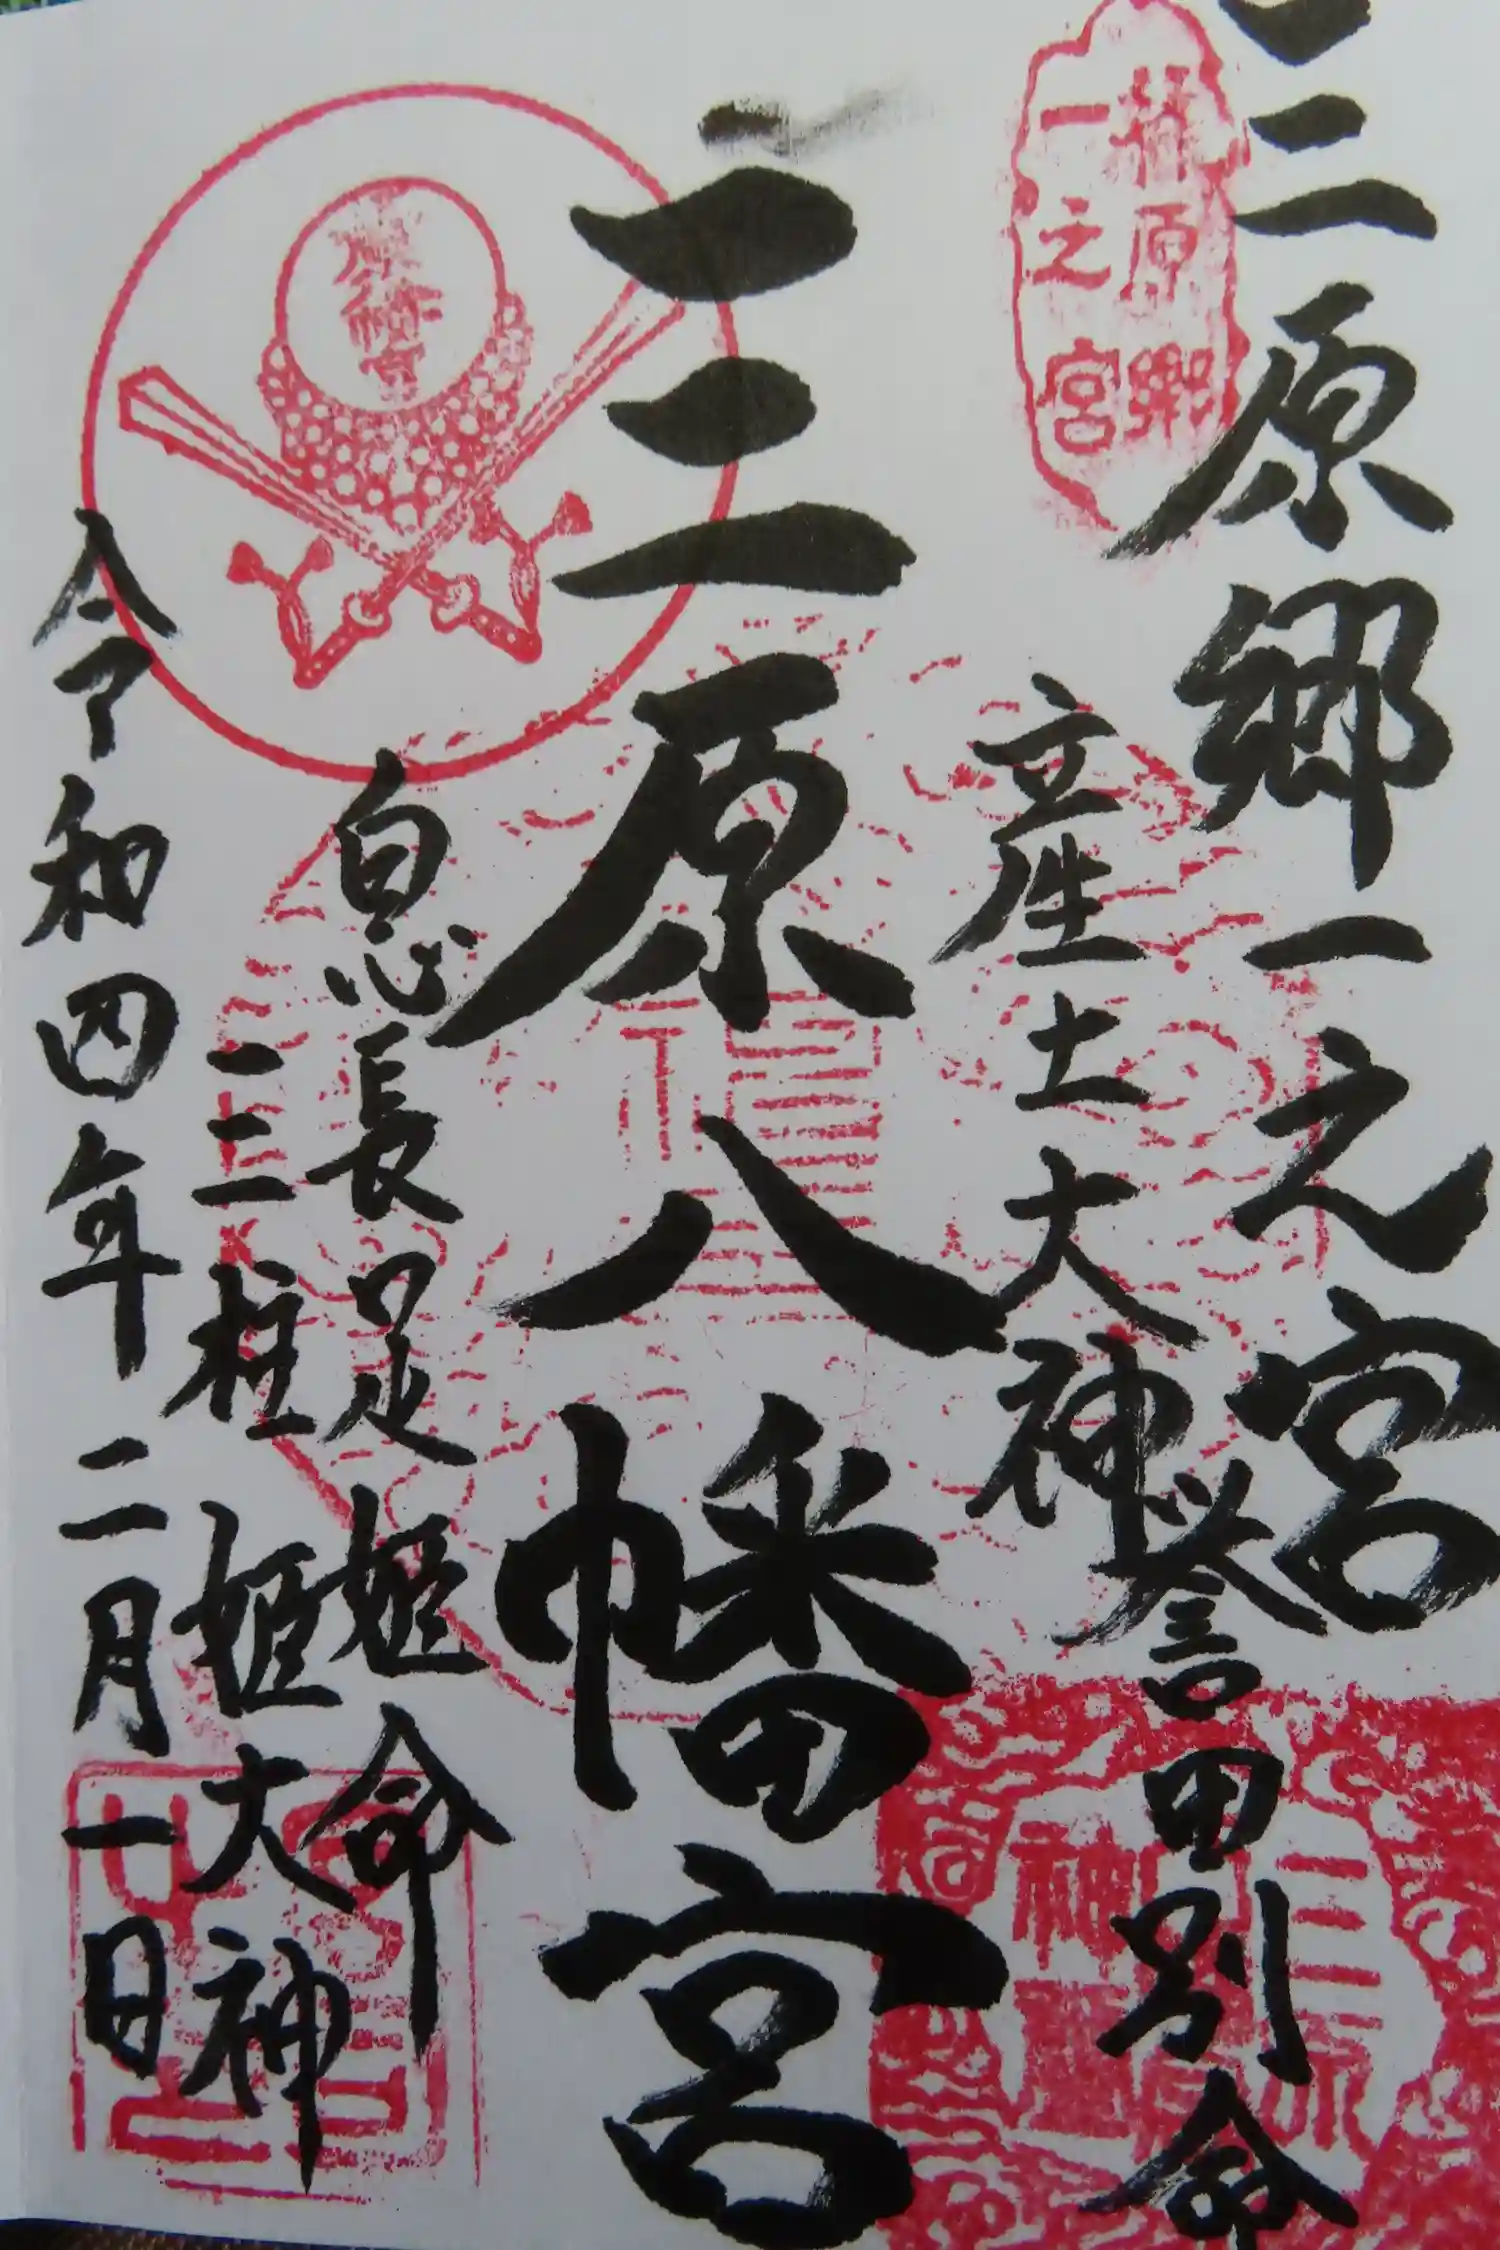 三原郷一之宮
誉田別命
立産土大神
三原八幡宮
息長足姫命
三柱姫大神
令和四年二月一日
三原郷
一之宮
八幡宮
福